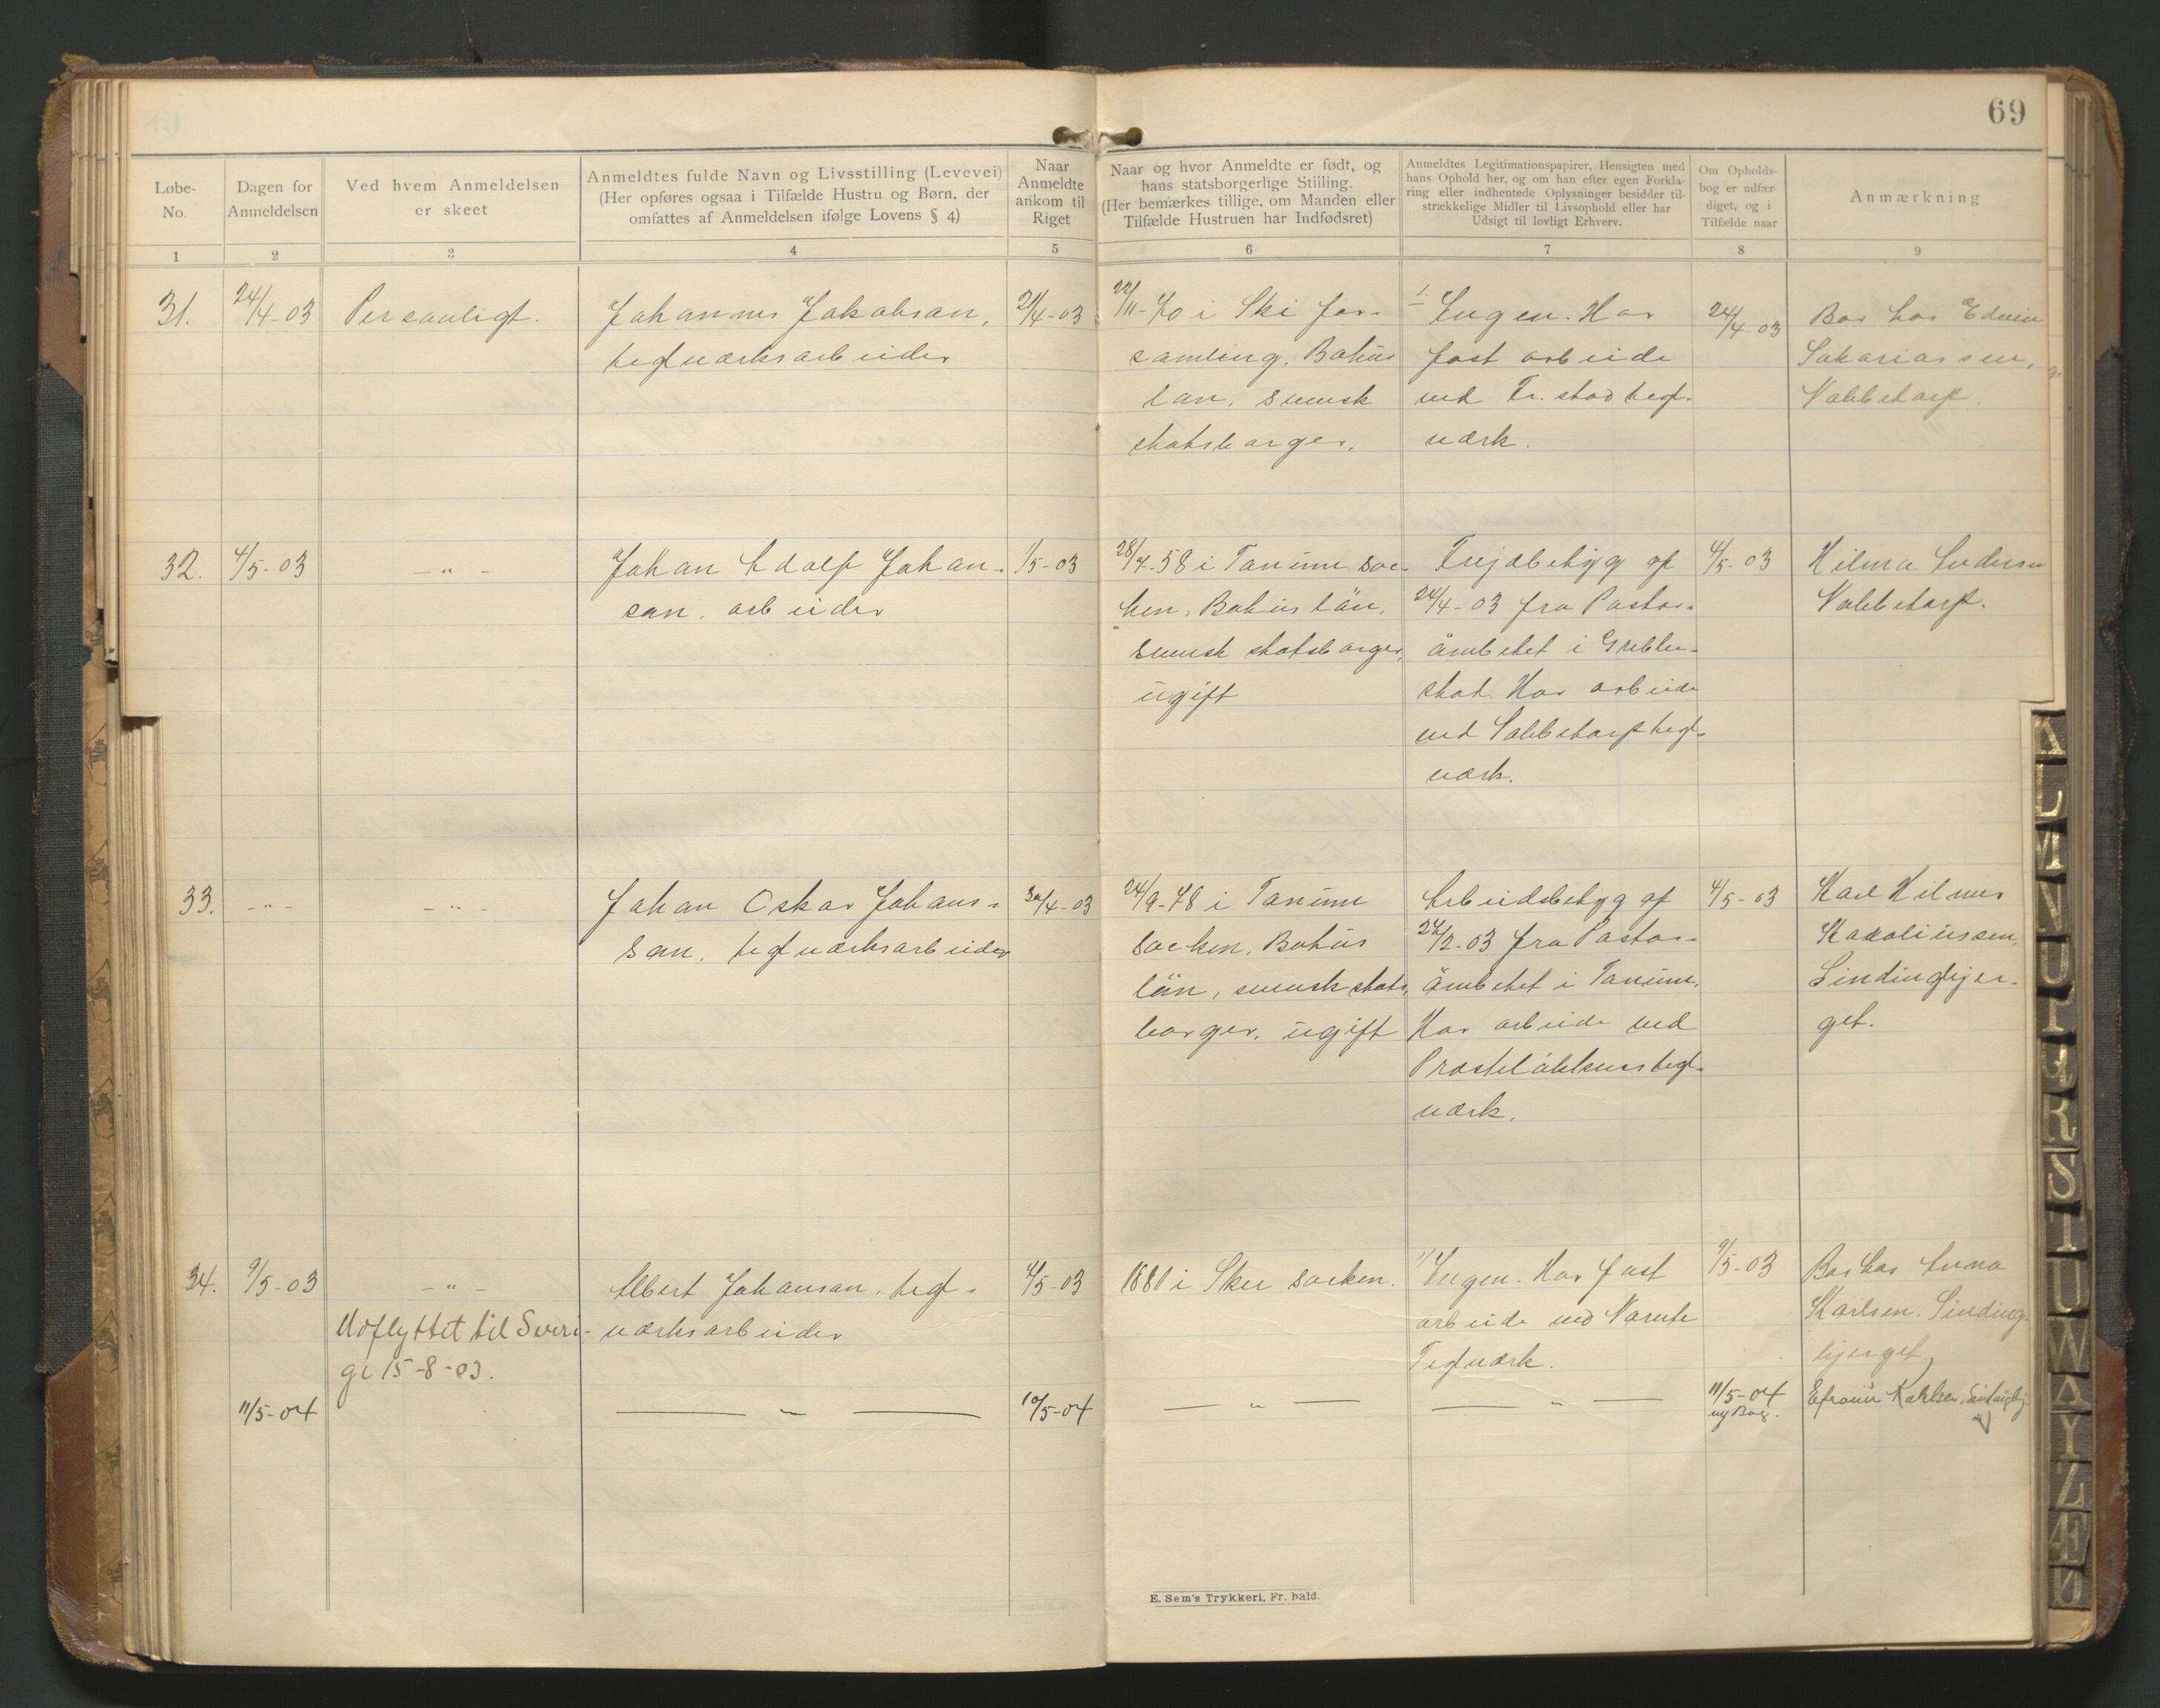 69
Løbe-
No.
Dagen for
Anmeldelsen
Ved hvem Anmeldelsen
er skeet
Anmeldtes fulde Navn og Livsstilling (Levevei)
(Her opføres ogsaa i Tilfælde Hustru og Børn, der
omfattes af Anmeldelsen ifølge Lovens § 4)
Naar
Anmeldte
ankom til
Riget
Naar og hvor Anmeldte er født, og
hans statsborgerlige Stilling.
(Her bemærkes tillige, om Manden eller
Tilfælde Hustruen har Indfødsret)
Anmeldtes Legitimationspapirer, Hensigten med
hans Ophold her, og om han efter egen Forkla-
ring eller indhentede Oplysninger besidder til-
strækkelige Midler til Livsophold eller har
Udsigt til lovligt Erhverv.
Om Opholds-
bog er udfær-
diget, og i
Tilfælde naar
Anmærkning
1 2 3 4 5 6 7 8 9
31.
24/4-03
Personligt.
Johannes Jakobson,
teglværksarbeider
21/4-03
i Ski for-
samling. Bohus
län. svensk
statsborger.
Ingen. Har
fast arbeide
ved Fr.stad tegl-
værk.
24/4-03
Bor hos Edvin
Sakariassen,
Nabbetorp.
32.
4/5-03
-"-
Johan Adolf Johan-
son. arbeider
1/5-03
28/4-58 i Tanum soc-
ken, Bohuslän,
svensk statsborger,
ugift
Frejdebetyg af
24/4-03 fra Pastor-
ämbetet i Grebbe-
stad. Har arbeide
ved Nabbetorp tegl-
værk.
4/5-03
Hilma Andersen
Nabbetorp.
33.
-"-
-"-
Johan Oskar Johans-
son. teglværksarbeider
30/4-03
24/9-78 i Tanum
socken, Bohus
län, svensk stats-
borger, ugift
Arbeidsbetyg af
/2-03 fra Pastor-
ämbetet i Tanum.
Har arbeide ved
Presteløkkens tegl-
værk.
4/5-03
Karl Hilmer
Karoliussen,
Sindingbjer-
get.
34.
9/5-03
-"-
Albert Johanson, tegl-
værksarbeider
4/5-03
1881 i Skee socken.
Ingen. Har fast
arbeide ved Narnte
Teglværk.
9/5-03
Bor hos Anna
Karlsen. Sinding-
bjerget,
Udflyttet til Sveri-
ge 15-8-03.
11/5-04
"
10/5-04
"
"
11/5-04
ny Bog.
Efraim Karlsen,
E. Sem's Trykkeri, Fr. hald.
A
L
M
N
O
P
Q
R
S
T
U
W
X
Y
Z
Æ
Ø